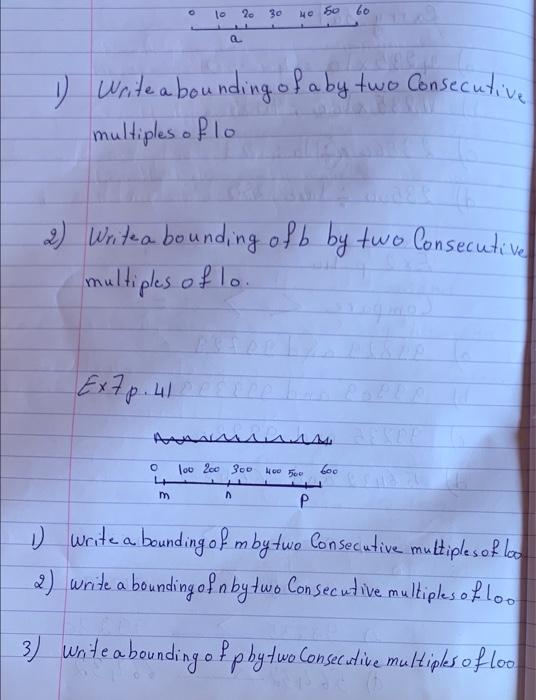 0 10 20 30 40 50 60
a
1) Write a bounding of a by two Consecutive
multiples of 10
2) Write a bounding of b by two Consecutive
multiples of 10.
Ex 7 p. 41
0 100 200 300 400 500 600
m n p
1) write a bounding of m by two Consecutive multiples of 100
2) write a bounding of n by two Consecutive multiples of 100
3) write a bounding of p by two Consecutive multiples of 100